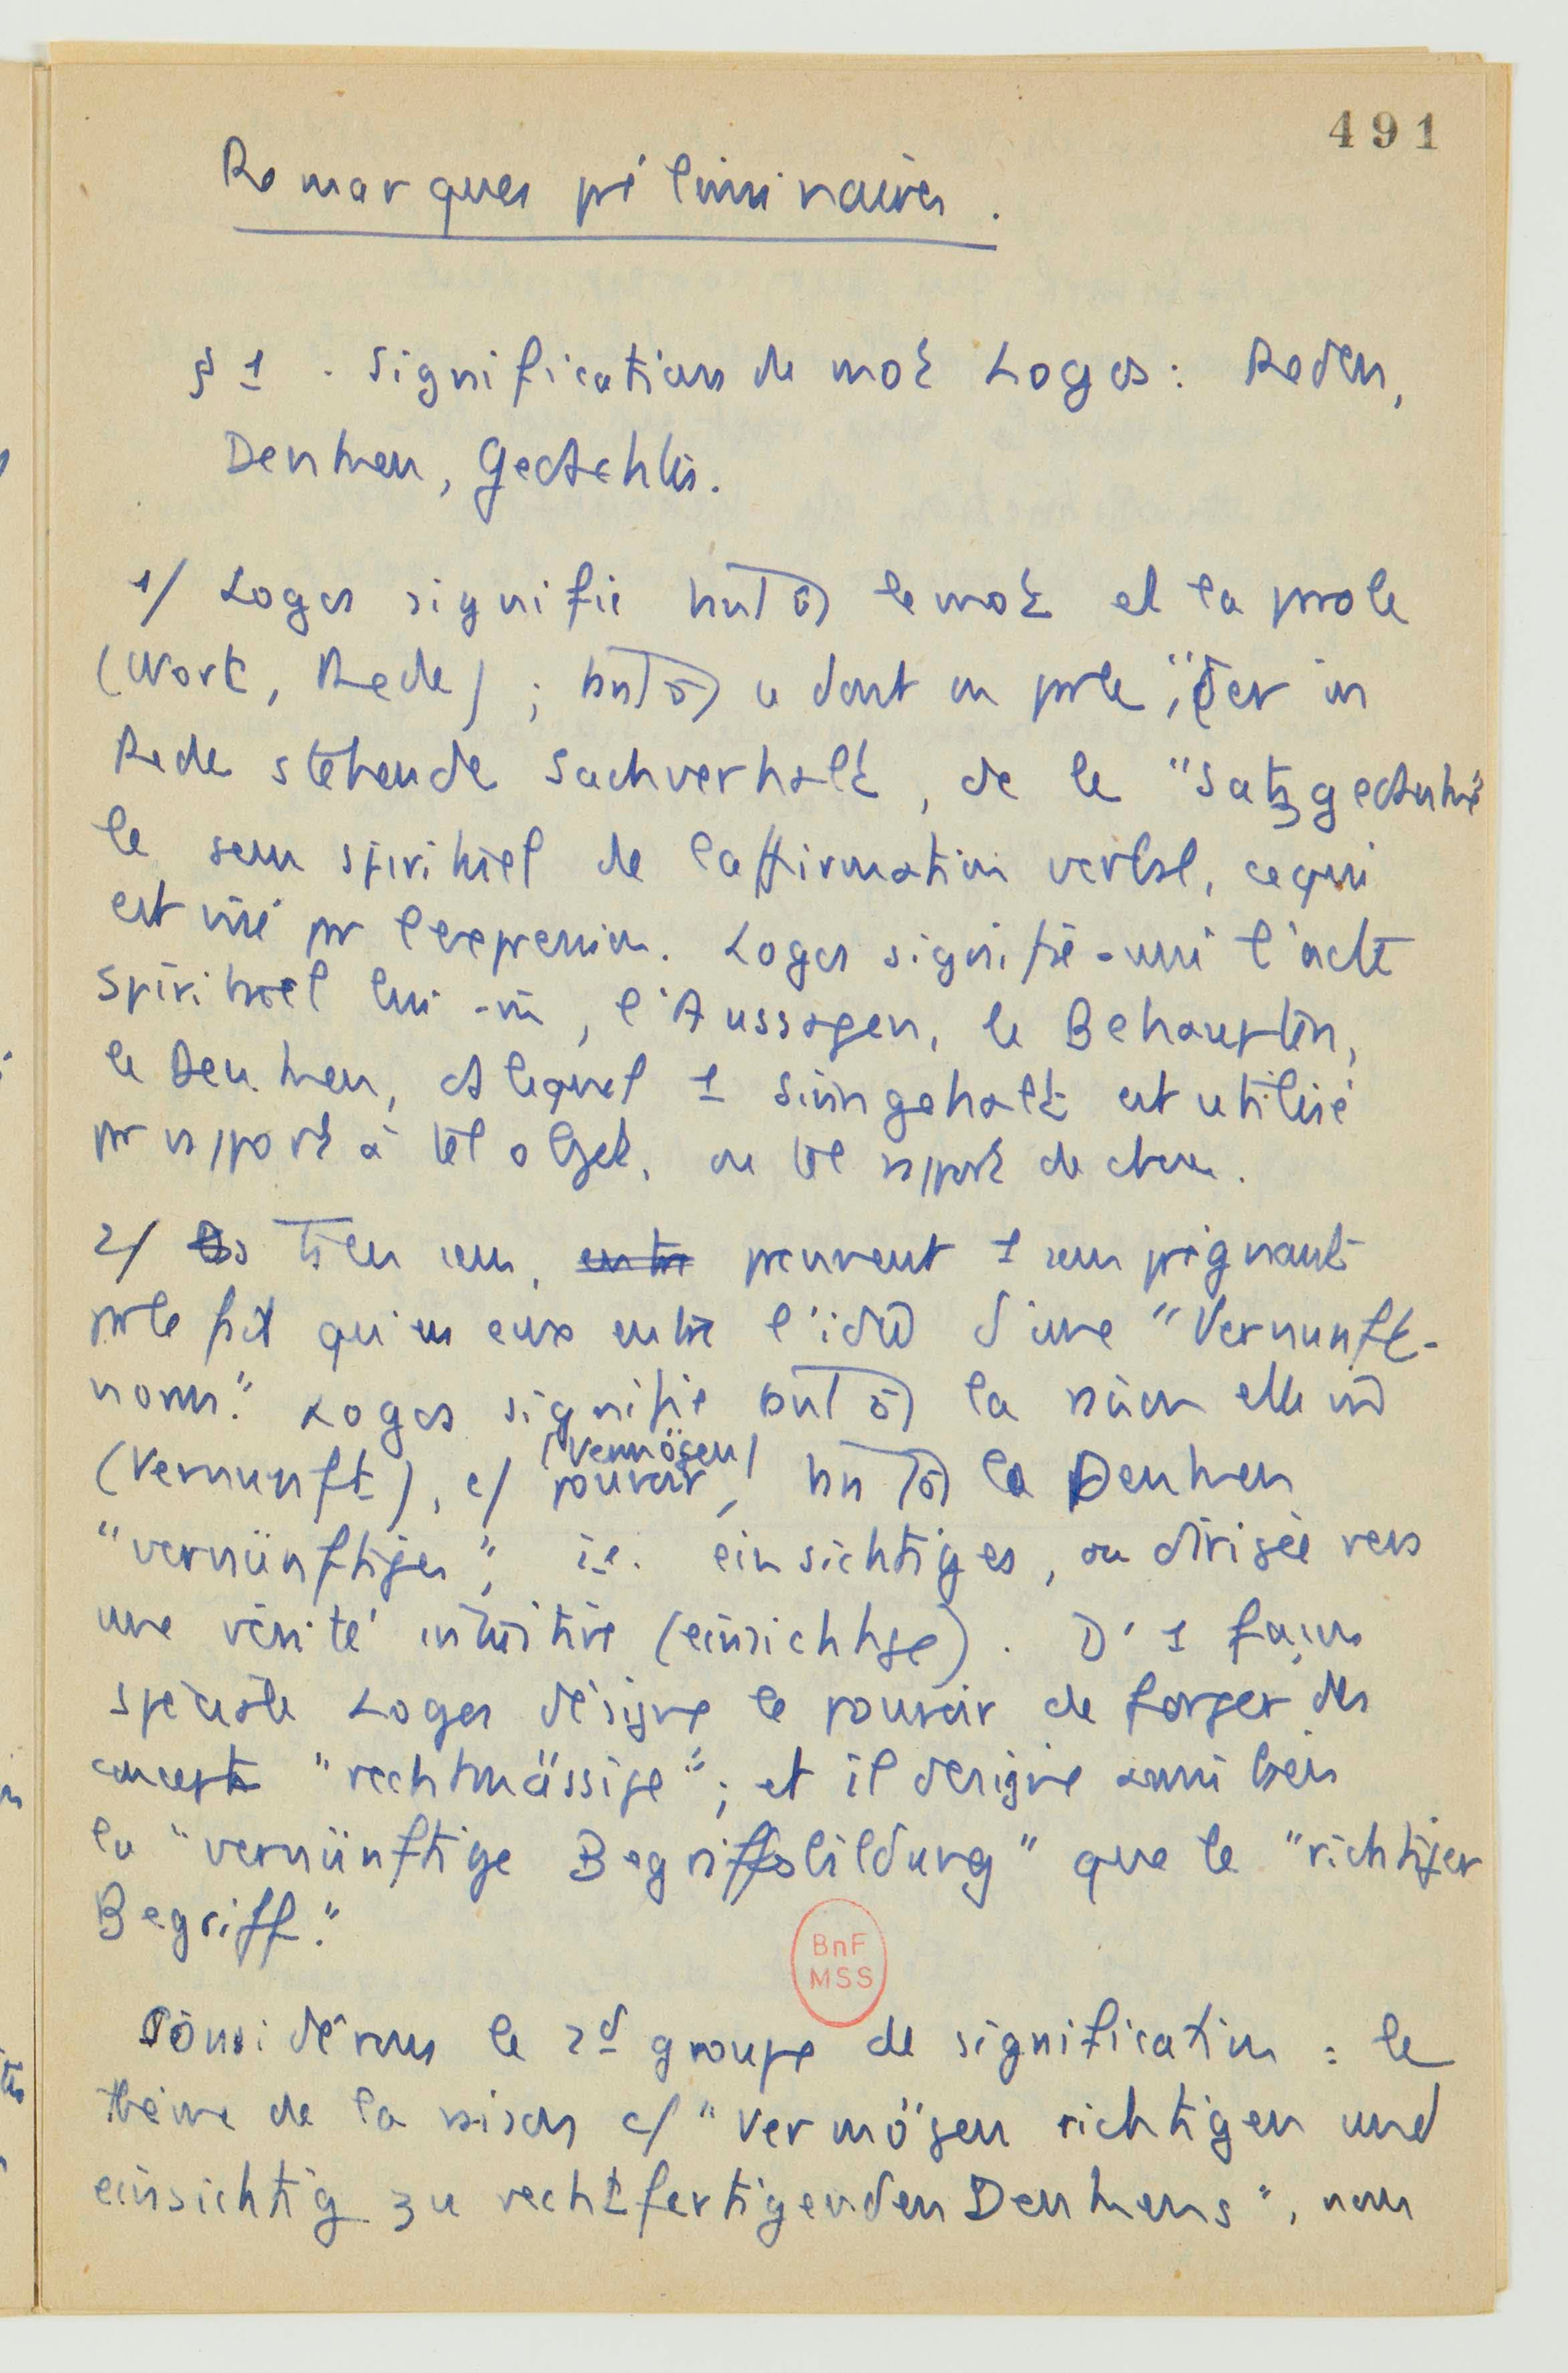 491
Remarques préliminaires.
§ 1 . Signification du mot Logos : Reden,
Denken, Gedachtes.
1/ Logos signifie tantôt le mot et la prole
(Wort, Rede) ; tantôt ce dont on prle, "der in
Rede stehende Sachverhalt, de le "Satzgedanke"
le sens spirituel de l'affirmation verbal, ce qui
est visé pr l'expression. Logos signifie aussi l'acte
spirituel lui-m̂, l'Aussagen, le Behaupten,
le Denken, ds lequel 1 Sinngehalt est utilisé
pr rapport à tel objet, ou tel rapport de chose.
2/ Ds tous ces sens, entre prennent 1 sens prégnant
pr le fait qu'en eux entre l'idée d'une "Vernunft-
norm." Logos signifie tantôt la raison elle m̂
(Vernunft), c/ pouvoir (Vermögen), tantôt le Denken
"vernünftiges", i.e. einsichtiges, ou dirigée vers
une vérité intuitive (einsichtige). D'1 façon
spéciale Logos désigne le pouvoir de forger des
concepts "rechtmässige" ; et il désigne aussi bien
la "vernünftige Begriffsbildung" que le "richtiger
Begriff."
BnF
MSS
Considérons le 2d groupe de signification : le
thème de la raison c/ "Vermögen richtigen und
einsichtig zu rechtfertigenden Denkens", nous